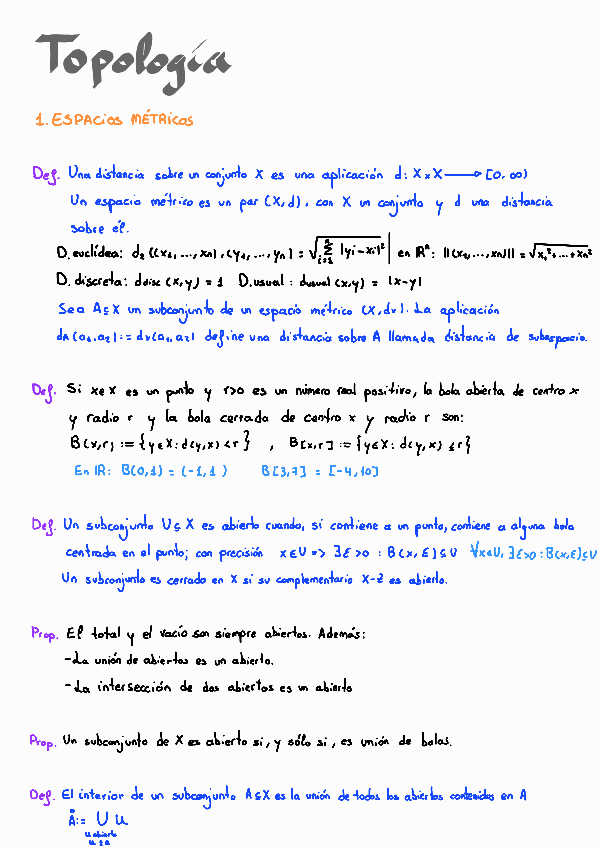 Topología
1. ESPACIOS MÉTRICOS
Def. Una distancia sobre un conjunto X es una aplicación d: X x X ⟶ [0, ∞)
Un espacio métrico es un par (X,d), con X un conjunto y d una distancia
sobre él.
D. euclídea: d₂((x₁,...,xn),(y₁,...,yn) = √∑ᵢ₌₁ⁿ |yi-xi|² en ℝⁿ: ||(x₁,...,xn)|| = √x₁²+...+xn²
D. discreta: ddisc (x,y) = 1 D. usual: dusual (x,y) = |x-y|
Sea A⊆X un subconjunto de un espacio métrico (X,dx). La aplicación
dA(a₁,a₂) := dx(a₁,a₂) define una distancia sobre A llamada distancia de subespacio.
Def. Si x∈X es un punto y r>0 es un número real positivo, la bola abierta de centro x
y radio r y la bola cerrada de centro x y radio r son:
B(x,r) := {y∈X: d(y,x) < r} , B[x,r] := {y∈X: d(y,x) ≤ r}
En IR: B(0,1) = (-1,1) B[3,7] = [-4,10]
Def. Un subconjunto U⊆X es abierto cuando, si contiene a un punto, contiene a alguna bola
centrada en el punto; con precisión x∈U => ∃ε>0 : B(x,ε)⊆U ∀x∈U, ∃ε>0: B(x,ε)⊆U
Un subconjunto es cerrado en X si su complementario X-Z es abierto.
Prop. El total y el vacío son siempre abiertos. Además:
-La unión de abiertos es un abierto.
-La intersección de dos abiertos es un abierto
Prop. Un subconjunto de X es abierto si, y sólo si, es unión de bolas.
Def. El interior de un subconjunto A⊆X es la unión de todos los abiertos contenidos en A
Å := ∪ U
U abierto
U⊆A